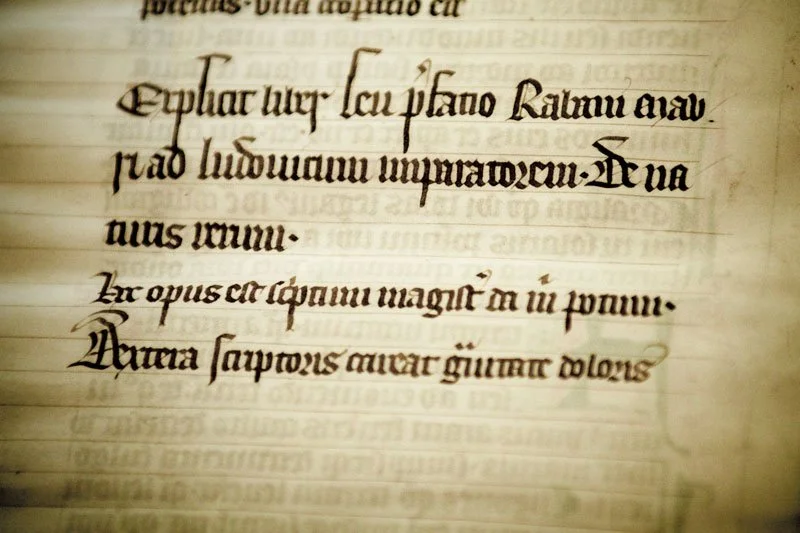 est
Explicit liber seu p̄fatio Rabani mau
ri ad ludouicum imparatorem. De na
turis rerum.
opus est sc̄ptum magist̄ da m̄ potum.
Dextera scriptoris careat gᵃuitate doloris